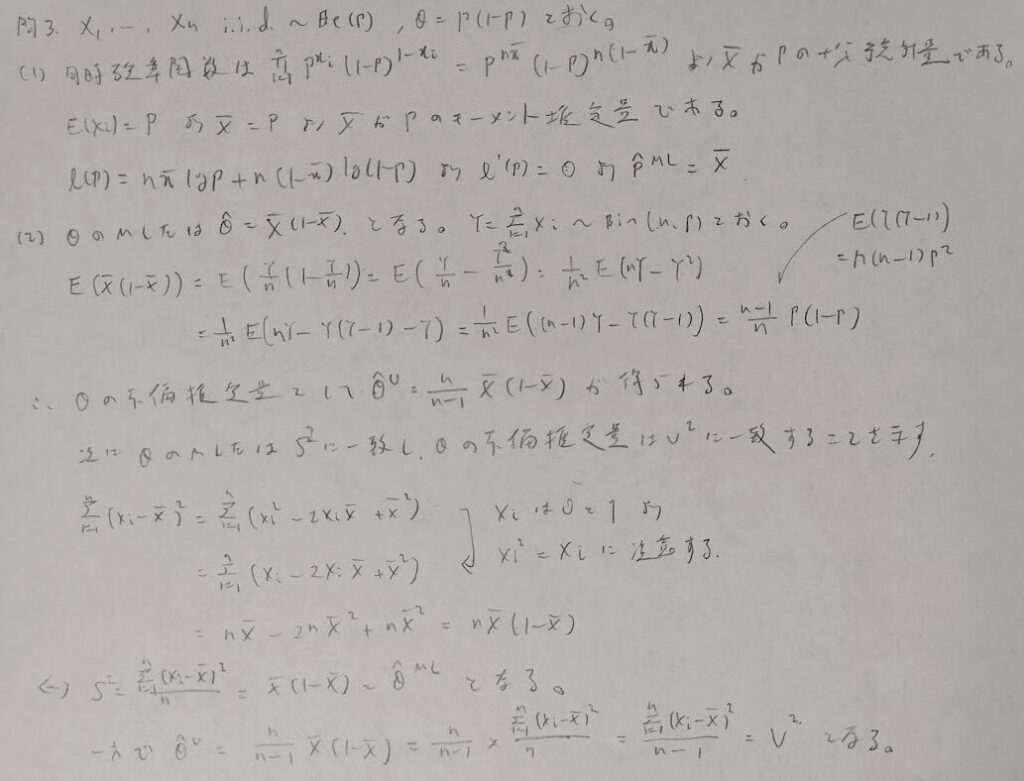 問3. X₁, …, Xn i.i.d. ~ Be(p), θ = p(1-p) とおく。
(1) 同時確率関数は Σ̂ᵢ₌₁ p^{xᵢ} (1-p)^{1-xᵢ} = p^{nx̄} (1-p)^{n(1-x̄)} より x̄ が p の十分統計量である。
E(Xᵢ) = p より x̄ = p より x̄ が p のモーメント推定量である。
l(p) = nx̄ log p + n(1-x̄) log(1-p) より l'(p) = 0 より p̂^{ML} = x̄
(2) θ の MLE は θ̂ = x̄(1-x̄). となる。 Y = Σᵢ₌₁ⁿ Xᵢ ~ Bin(n, p) とおく。
E(Y(Y-1))
= n(n-1)p²
E(x̄(1-x̄)) = E(Y/n (1 - Y/n)) = E(Y/n - Y²/n²) = 1/n² E(nY - Y²)
= 1/n² E(nY - Y(Y-1) - Y) = 1/n² E((n-1)Y - Y(Y-1)) = (n-1)/n p(1-p)
∴ θ の不偏推定量として θ̂^U = n/(n-1) x̄(1-x̄) が得られる。
次に θ の MLE は S² に一致し、θ の不偏推定量は V² に一致することを示す.
Σᵢ₌₁ⁿ (xᵢ - x̄)² = Σᵢ₌₁ⁿ (xᵢ² - 2xᵢx̄ + x̄²)
xᵢ は 0 と 1 より
xᵢ² = xᵢ に注意する.
= Σᵢ₌₁ⁿ (xᵢ - 2xᵢx̄ + x̄²)
= nx̄ - 2nx̄² + nx̄² = nx̄(1-x̄)
S² = Σᵢ₌₁ⁿ (xᵢ - x̄)²/n = x̄(1-x̄) = θ̂^{ML} となる。
一方で θ̂^U = n/(n-1) x̄(1-x̄) = n/(n-1) × Σᵢ₌₁ⁿ (xᵢ - x̄)²/n = Σᵢ₌₁ⁿ (xᵢ - x̄)²/(n-1) = V² となる。